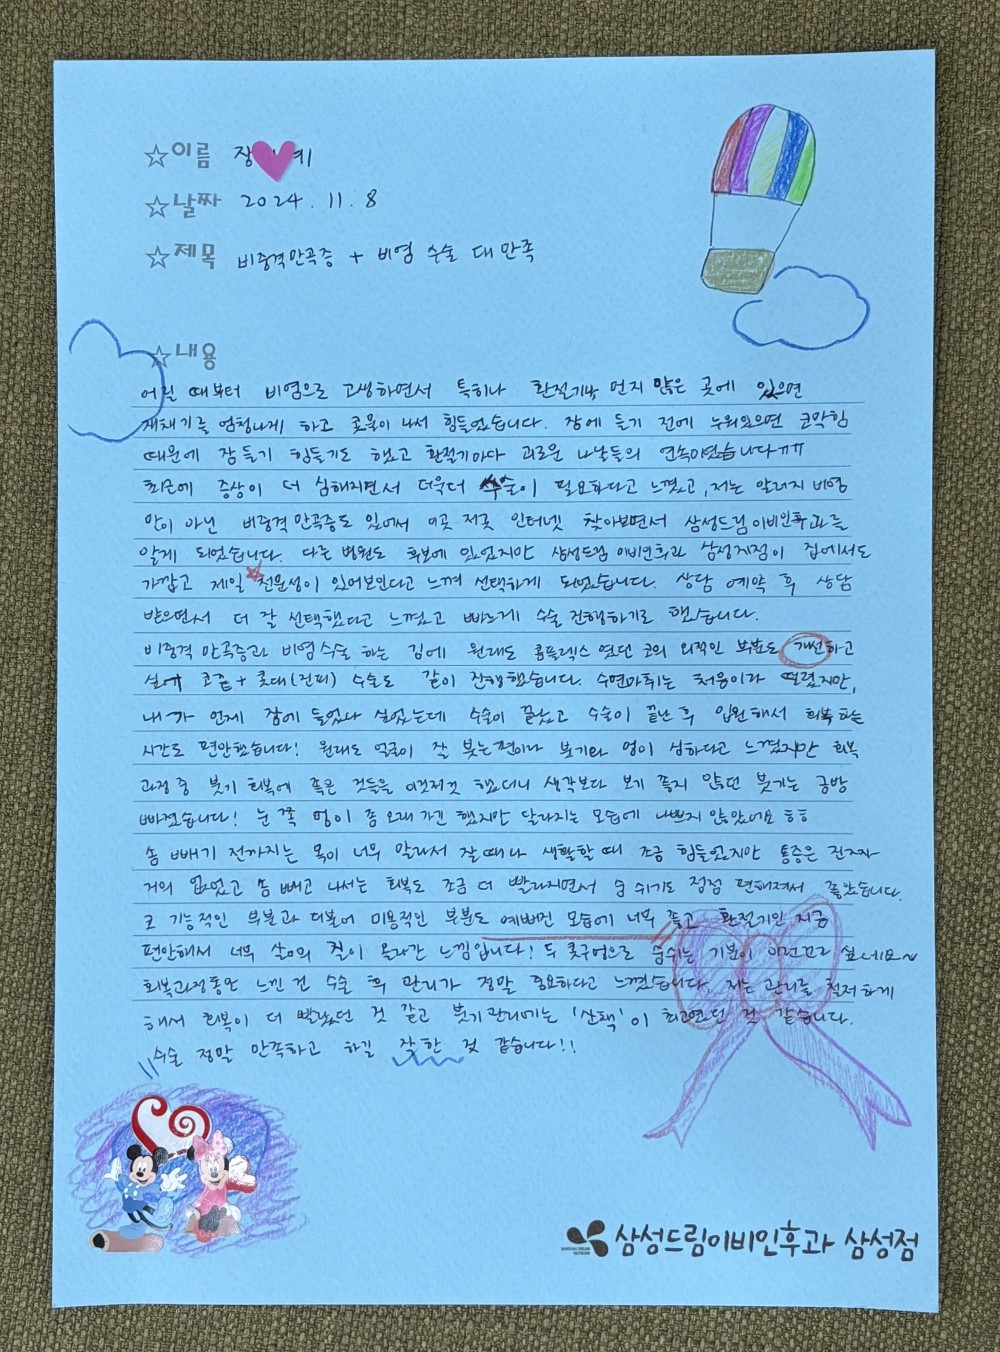 ☆이름 장 예
☆날짜 2024. 11. 8
☆제목 비중격만곡증 + 비염 수술 대만족
☆내용
어릴 때부터 비염으로 고생하면서 특히나 환절기나 먼지 많은 곳에 있으면
재채기를 엄청나게 하고 콧물이 나서 힘들었습니다. 잠에 들기 전에 누워있으면 코막힘
때문에 잠들기 힘들기도 했고 환절기마다 괴로운 나날들의 연속이었습니다ㅠㅠ
최근에 증상이 더 심해지면서 더욱더 수술이 필요하다고 느꼈고, 저는 알러지 비염
만이 아닌 비중격만곡증도 있어서 이곳 저곳 인터넷 찾아보면서 삼성드림이비인후과를
알게 되었습니다. 다른 병원도 후보에 있었지만 삼성드림이비인후과 삼성점이 집에서도
가깝고 제일 전문성이 있어보인다고 느껴 선택하게 되었습니다. 상담 예약 후 상담
받으면서 더 잘 선택했다고 느꼈고 빠르게 수술 진행하기로 했습니다.
비중격만곡증과 비염수술 하는 김에 원래도 콤플렉스였던 코의 외적인 부분도 개선하고
싶어 코끝 + 콧대(진피) 수술도 같이 진행했습니다. 수면마취는 처음이라 떨렸지만,
내가 언제 잠에 들었나 싶었는데 수술이 끝났고 수술이 끝난 후 입원해서 회복하는
시간도 편안했습니다! 원래도 얼굴이 잘 붓는편이라 붓기와 멍이 심하다고 느꼈지만 회복
과정 중 붓기 회복에 좋은 것들을 이것저것 했더니 생각보다 보기 좋지 않던 붓기는 금방
빠졌습니다! 눈 쪽 멍이 좀 오래 가긴 했지만 달라지는 모습에 나쁘지 않았어요 ㅎㅎ
솜 빼기 전까지는 목이 너무 말라서 잘때나 생활할 때 조금 힘들었지만 통증은 진짜
거의 없었고 솜 빼고 나서는 회복도 조금 더 빨라지면서 숨 쉬기도 점점 편해져서 좋았습니다.
코 기능적인 부분과 더불어 미용적인 부분도 예뻐진 모습에 너무 좋고 환절기인 지금
편안해서 너무 삶의 질이 올라간 느낌입니다! 두 콧구멍으로 숨쉬는 기분이 이런거라 싶네요~
회복과정동안 느낀 건 수술 후 관리가 정말 중요하다고 느꼈습니다. 저는 관리를 철저하게
해서 회복이 더 빨랐던 것 같고 붓기관리에는 '산책'이 최고였던 것 같습니다.
수술 정말 만족하고 하길 잘한 것 같습니다!!
삼성드림이비인후과 삼성점